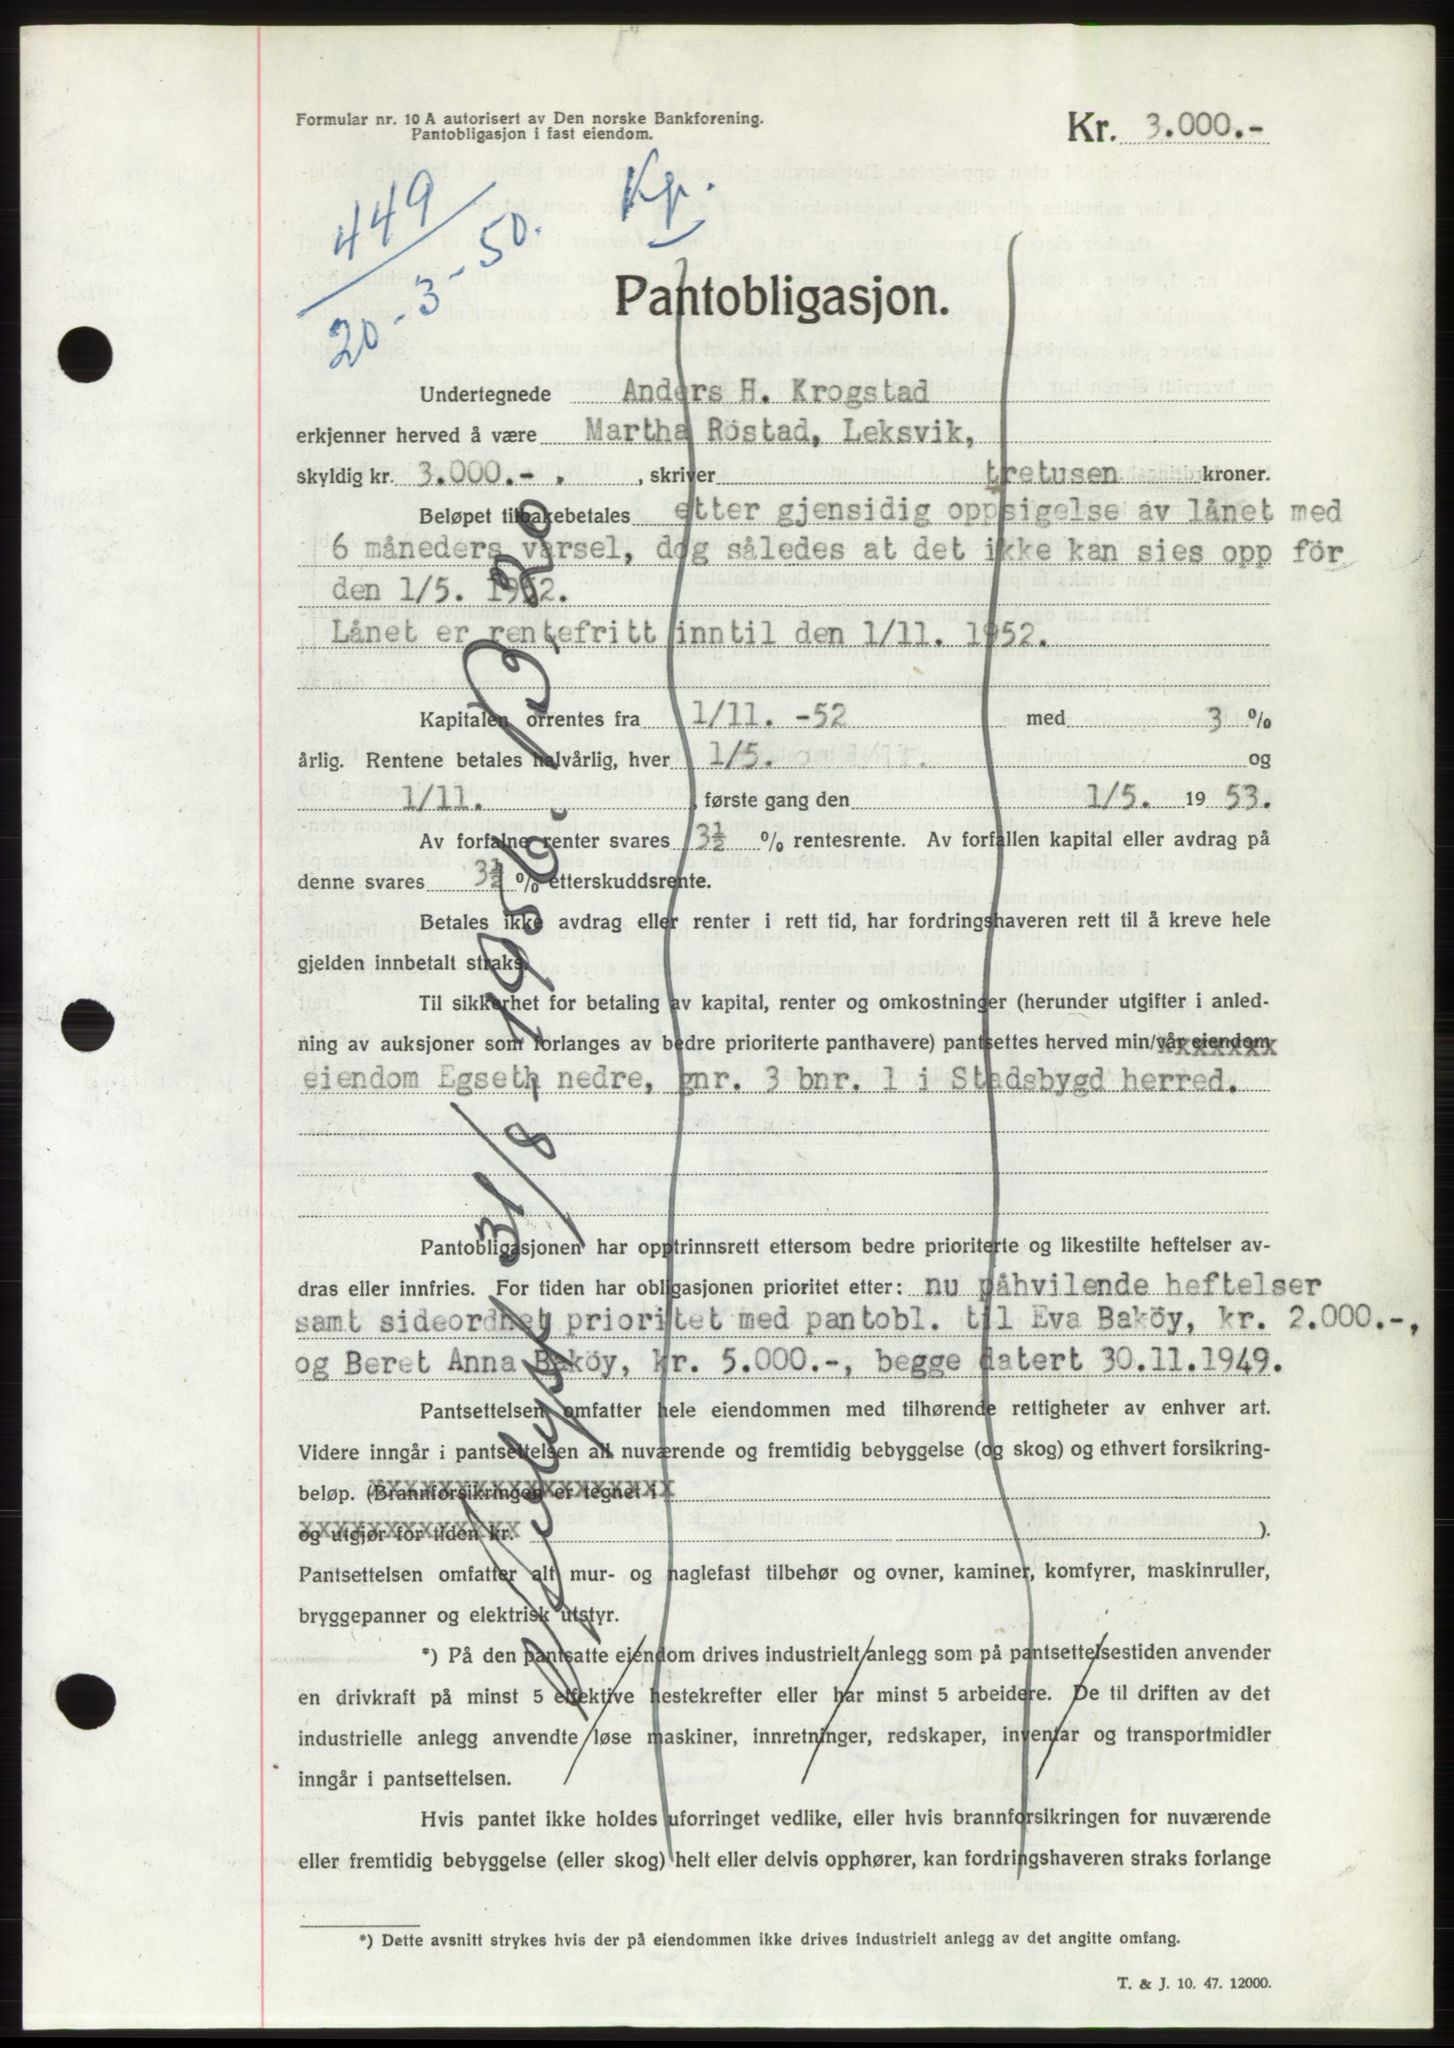 Formular nr. 10 A autorisert av Den norske Bankforening.
Pantobligasjon i fast eiendom.
Kr. 3.000.-
449
20-3-50.
Kp.
Pantobligasjon.
Undertegnede Anders H. Krogstad
erkjenner herved å være Martha Röstad, Leksvik,
skyldig kr. 3.000.- . , skriver tretusen kroner.
Beløpet tilbakebetales etter gjensidig oppsigelse av lånet med
6 måneders varsel, dog således at det ikke kan sies opp för
den 1/5. 1952.
Lånet er rentefritt inntil den 1/11. 1952.
Kapitalen forrentes fra 1/11. -52 med 3 %
årlig. Rentene betales halvårlig, hver 1/5. og
1/11. , første gang den 1/5. 19 53.
Av forfalne renter svares 3½ % rentesrente. Av forfallen kapital eller avdrag på
denne svares 3½ % etterskuddsrente.
Betales ikke avdrag eller renter i rett tid, har fordringshaveren rett til å kreve hele
gjelden innbetalt straks.
Til sikkerhet for betaling av kapital, renter og omkostninger (herunder utgifter i anled-
ning av auksjoner som forlanges av bedre prioriterte panthavere) pantsettes herved min/vår eiendom
eiendom Egseth nedre, gnr. 3 bnr. 1 i Stadsbygd herred.
Pantobligasjonen har opptrinnsrett ettersom bedre prioriterte og likestilte heftelser av-
dras eller innfries. For tiden har obligasjonen prioritet etter: nu påhvilende heftelser
samt sideordnet prioritet med pantobl. til Eva Baköy, kr. 2.000.-,
og Beret Anna Baköy, kr. 5.000.-, begge datert 30.11.1949.
Pantsettelsen omfatter hele eiendommen med tilhørende rettigheter av enhver art.
Videre inngår i pantsettelsen all nuværende og fremtidig bebyggelse (og skog) og ethvert forsikring-
beløp. (Brannforsikringen er tegnet i
og utgjør for tiden kr. ).
Pantsettelsen omfatter alt mur- og naglefast tilbehør og ovner, kaminer, komfyrer, maskinruller,
bryggepanner og elektrisk utstyr.
*) På den pantsatte eiendom drives industrielt anlegg som på pantsettelsestiden anvender
en drivkraft på minst 5 effektive hestekrefter eller har minst 5 arbeidere. De til driften av det
industrielle anlegg anvendte løse maskiner, innretninger, redskaper, inventar og transportmidler
inngår i pantsettelsen.
Hvis pantet ikke holdes uforringet vedlike, eller hvis brannforsikringen for nuværende
eller fremtidig bebyggelse (eller skog) helt eller delvis opphører, kan fordringshaveren straks forlange
*) Dette avsnitt strykes hvis der på eiendommen ikke drives industrielt anlegg av det angitte omfang.
T. & J. 10. 47. 12000.
Avlyst 31/8-1956.